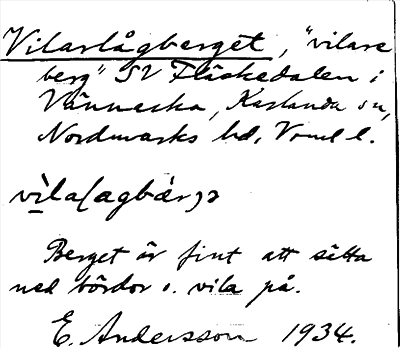 Vilarlågberget, "vilare
berg" SV Fläskedalen i
Vänneska, Karlanda sn,
Nordmarks hd, Vrml l.
vìla(agbær)ə
Berget är fint att sätta
ned bördor o. vila på.
E. Andersson 1934.